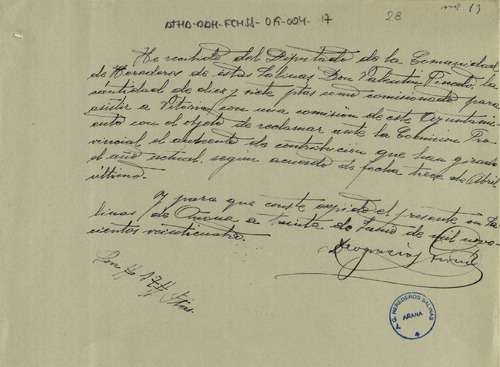 ATHA-DAH-FCHSA-OR-004-17
28
nº 13
He recibido del Diputado de la Comunidad
de Herederos de estas Salinas Don Valentin la
cantidad de diez y siete ptas como comisionado para
asistir a Vitoria con una comision de este Ayuntami-
ento con el objeto de reclamar ante la Comision Pro-
vincial el aumento de contribución que han girado
el año actual segun acuerdo de fecha trece de Abril
último.
Y para que conste expido el presente en Sa-
linas de Añana a treinta de Junio de mil nove-
cientos veinticuatro.
Deogracias
Son # 17 # Ptas.
T. G. HEREDEROS SALINAS
AÑANA